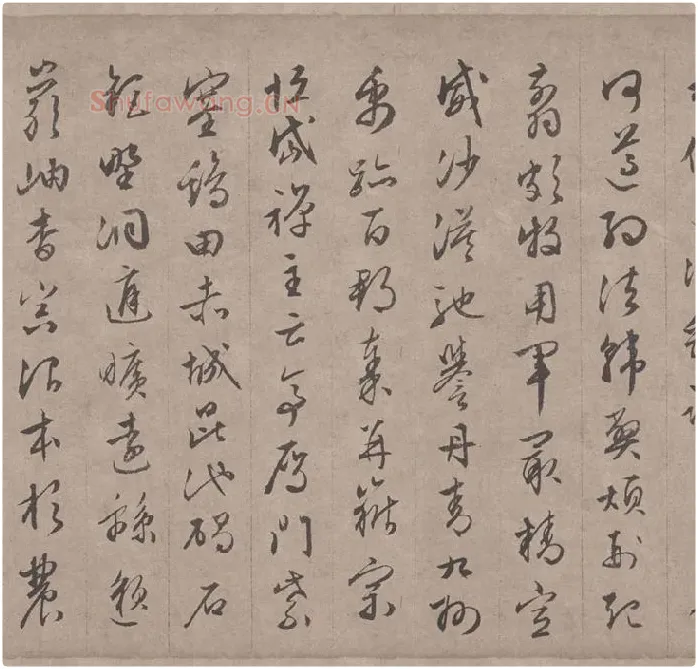 何遵約法韓弊煩刑起
翦頗牧用軍最精宣
威沙漠馳譽丹青九州
禹跡百郡秦并嶽宗
恒岱禪主云亭雁門紫
塞雞田赤城昆池碣石
鉅野洞庭曠遠緜邈
巖岫杳冥治本於農
Shufawang.CN